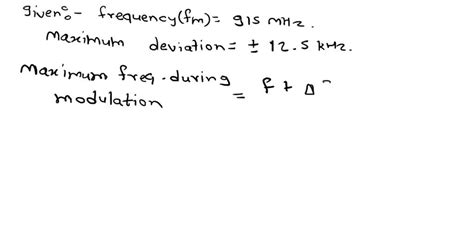 given:- frequency(fm)= 915 MHz.
Maximum deviation= ± 12.5 kHz.
Maximum freq. during
modulation = f + Δ